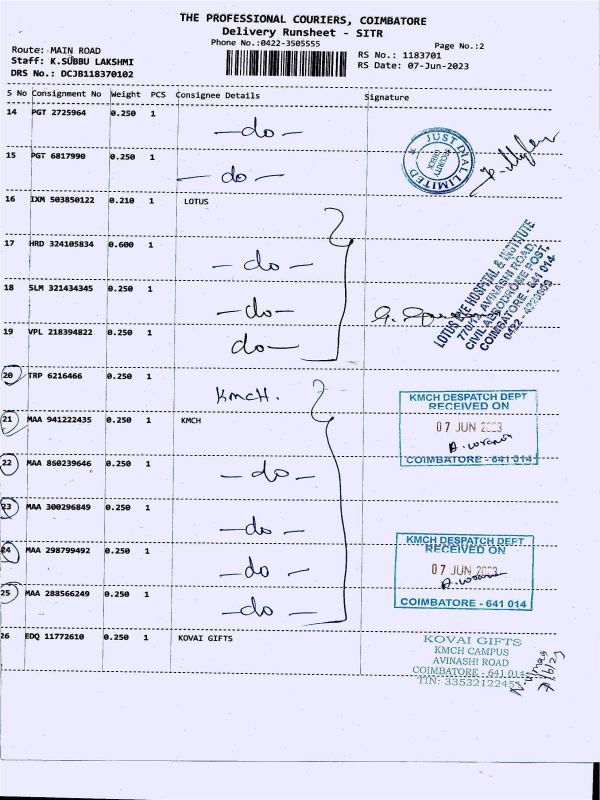 THE PROFESSIONAL COURIERS, COIMBATORE
Delivery Runsheet - SITR
Phone No.:0422-3505555
Page No.:2
Route: MAIN ROAD
Staff: K.SUBBU LAKSHMI
DRS No.: DCJB118370102
RS No.: 1183701
RS Date: 07-Jun-2023
S No Consignment No Weight PCS Consignee Details Signature
14 PGT 2725964 0.250 1
-do-
JUST DIAL LIMITED
SECURITY CHECK
15 PGT 6817990 0.250 1
- do -
16 IXM 503850122 0.210 1 LOTUS
17 HRD 324105834 0.600 1
- do -
18 SLM 321434345 0.250 1
-do-
LOTUS EYE HOSPITAL & INSTITUTE
770/12, AVINASHI ROAD,
CIVIL AERODROME POST,
COIMBATORE - 641 014
19 VPL 218394822 0.250 1
do-
20 TRP 6216466 0.250 1
KMCH.
KMCH DESPATCH DEPT
RECEIVED ON
07 JUN 2023
COIMBATORE - 641 014
21 MAA 941222435 0.250 1 KMCH
22 MAA 860239646 0.250 1
-do-
23 MAA 300296849 0.250 1
-do-
24 MAA 298799492 0.250 1
-do -
KMCH DESPATCH DEPT
RECEIVED ON
07 JUN 2023
COIMBATORE - 641 014
25 MAA 288566249 0.250 1
-do-
26 EDQ 11772610 0.250 1 KOVAI GIFTS
KOVAI GIFTS
KMCH CAMPUS
AVINASHI ROAD
COIMBATORE - 641 014
TIN: 33532122451
7/6/23